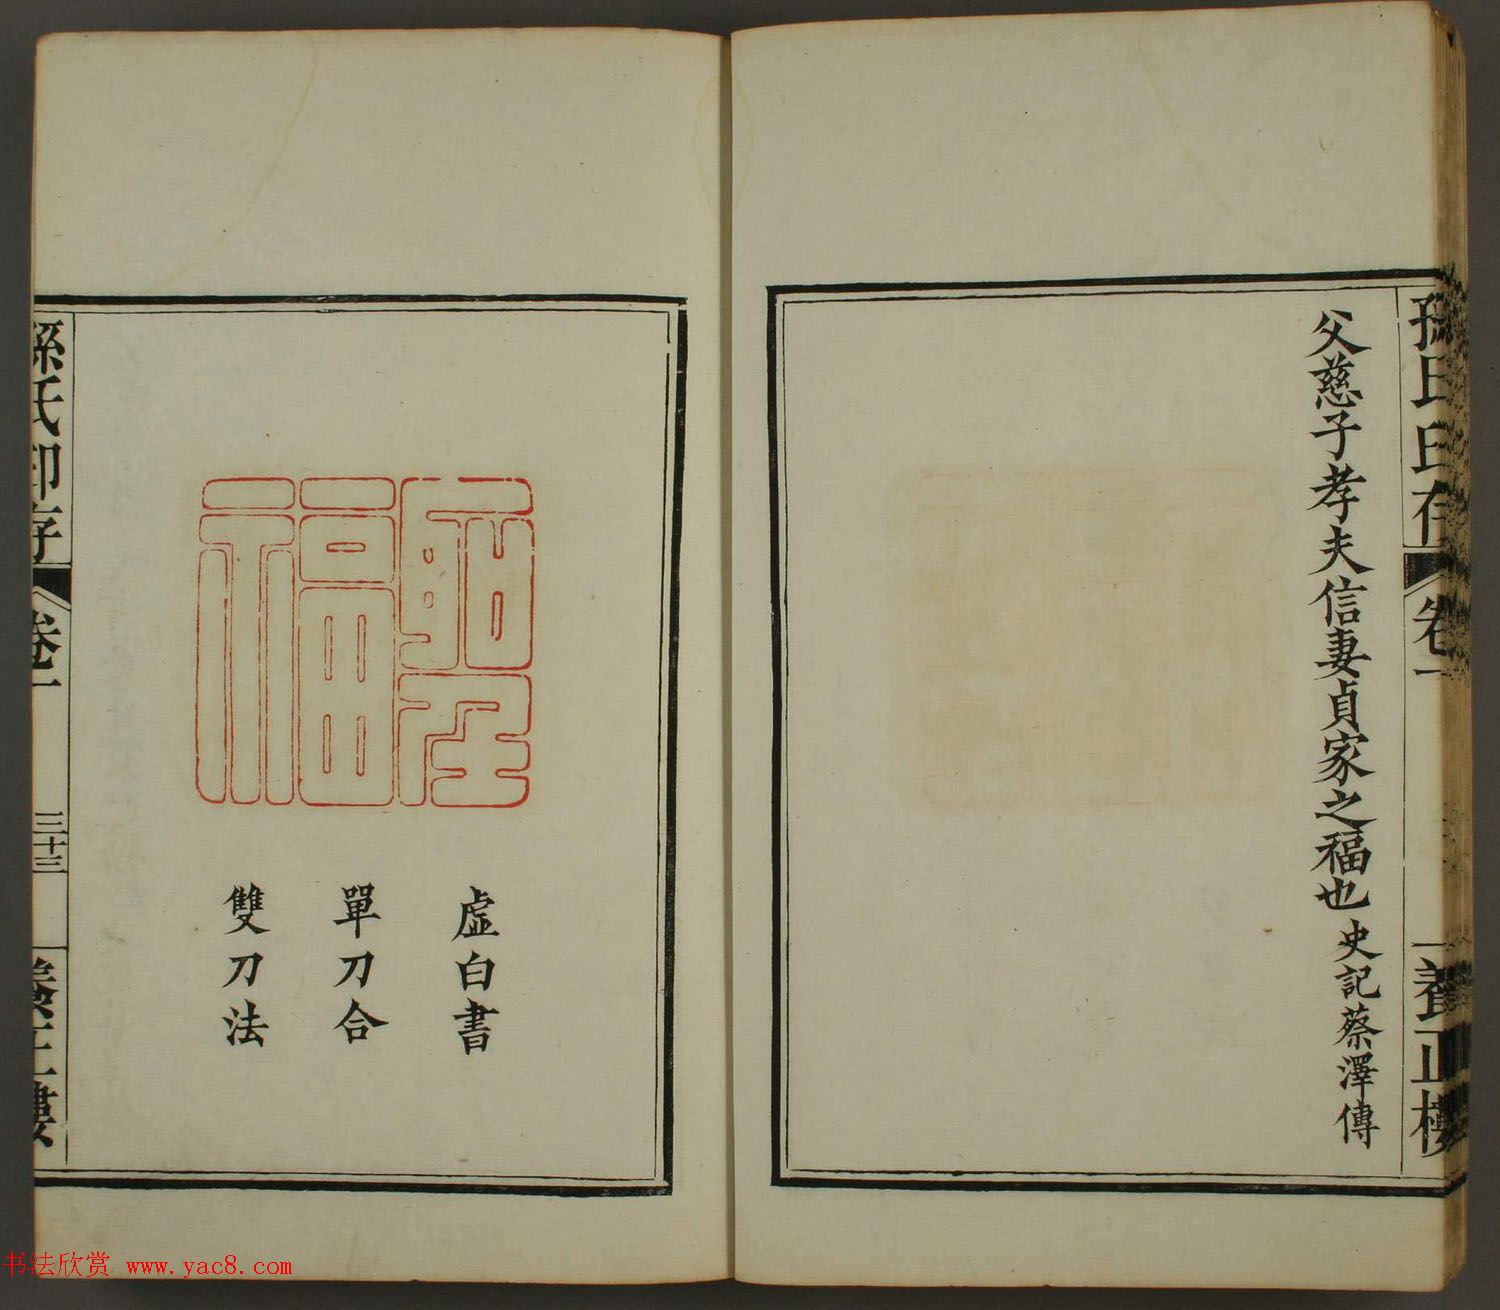 孫氏印存
卷一
養正樓
父慈子孝夫信妻貞家之福也 史記蔡澤傳
虛白書
單刀合
雙刀法
孫氏印存
卷一
三十三
養正樓
书法欣赏 www.yac8.com